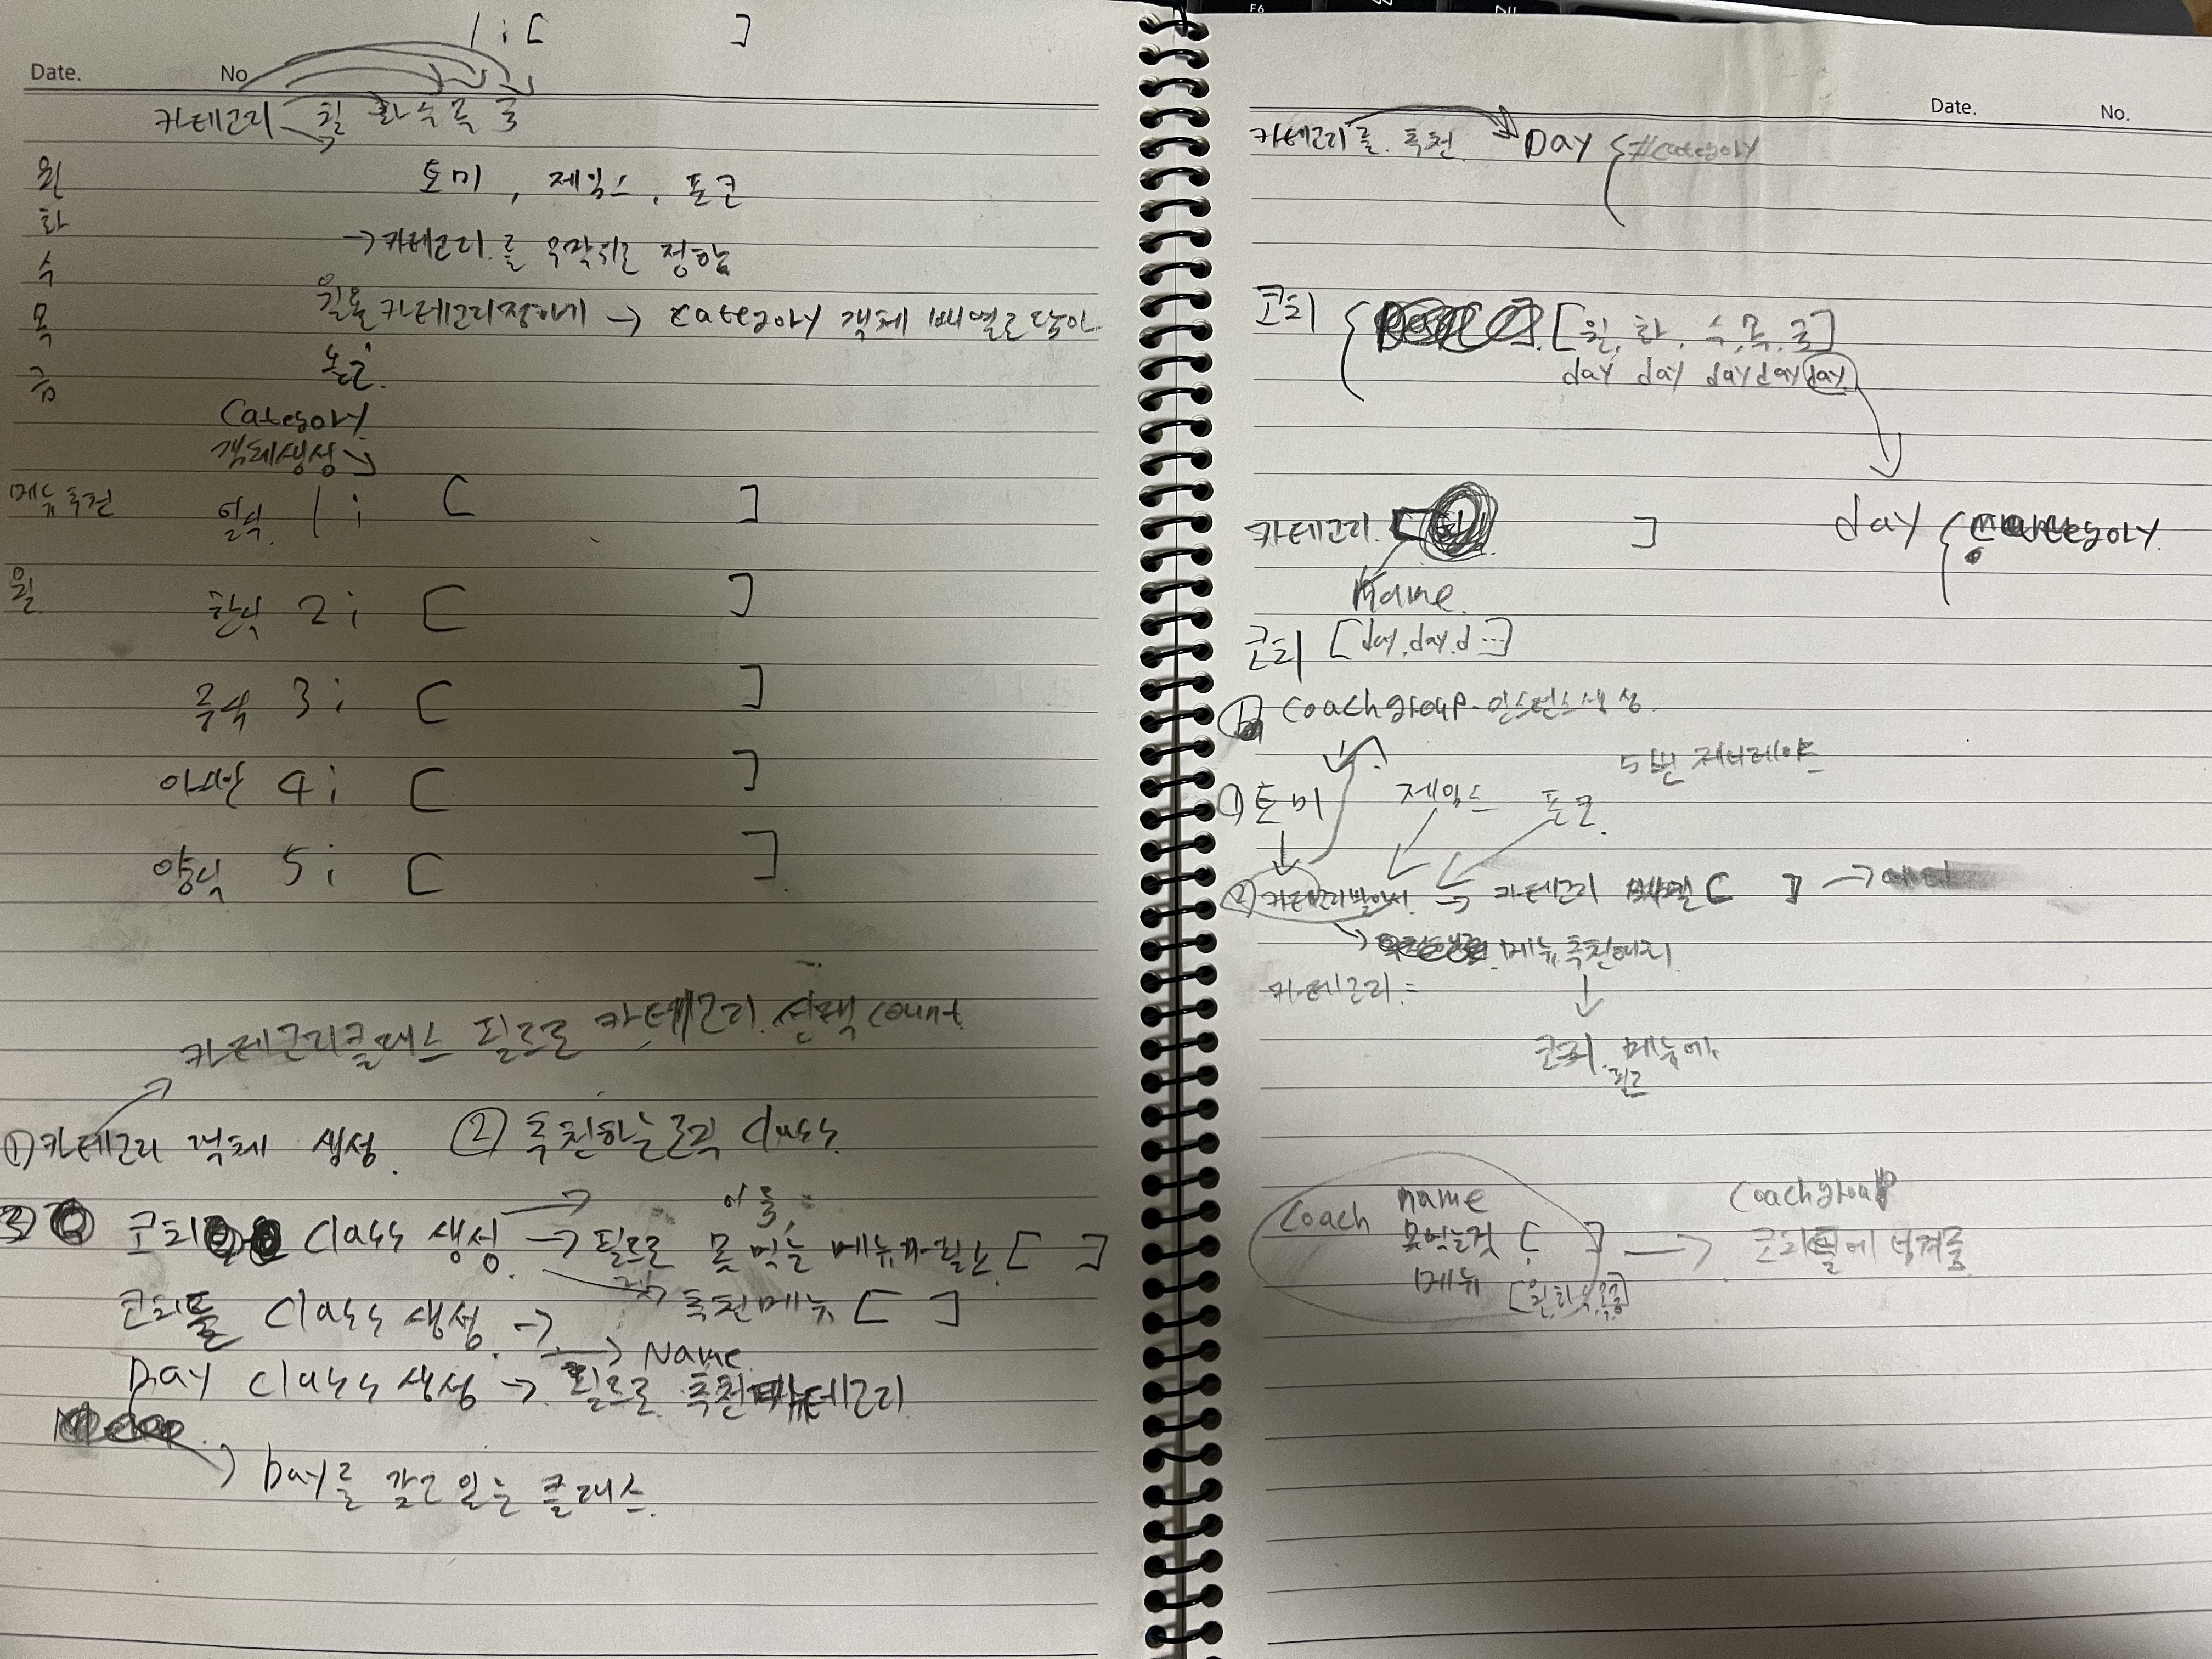 1 ; [ ]
Date. No
카테고리 → 월 화 수 목 금
월
화
수
목
금
토미, 제임스, 포코
→ 카테고리를 우선 정함
월요일 카테고리정하기 → category 객체 배열로 담아
놓고.
Category
객체생성
메뉴추천
일식 1 ; [ ]
월 한식 2 ; [ ]
중식 3 ; [ ]
아시안 4 ; [ ]
양식 5 ; [ ]
카테고리클래스 필드로 카테고리 선택 count
① 카테고리 객체 생성. ② 추천하는 로직 Class
이름,
③ 코치 Class 생성 → 필드로 못 먹는 메뉴가 필요 [ ]
→ 추천메뉴 [ ]
코치들 Class 생성 →
→ Name
Day class 생성 → 필드로 추천 카테고리
→ Day를 갖고 있는 클래스.
F6
Date. No.
카테고리를 추천 → Day { #category
코치 { [월, 화, 수, 목, 금]
day day day day day
카테고리 [ ]
day { category.
Name.
코치 [day, day, d ...]
coachgroup 인스턴스생성.
5번 제너레이트
① 토미 제임스 포코.
② 카테고리받아서 → 카테고리 배열 [ ] →
→ 메뉴 추천해리
카테고리 =
↓
코치 메뉴에
필드
coach name
못먹는것 [ ]
메뉴 [월,화,수,목,금]
→ Coachgroup
코치들에 넘겨줌